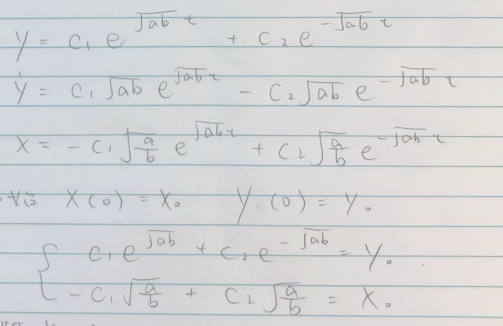 y = c₁ e^{√ab t} + c₂ e^{-√ab t}
ẏ = c₁ √ab e^{√ab t} - c₂ √ab e^{-√ab t}
x = -c₁ √(a/b) e^{√ab t} + c₂ √(a/b) e^{-√ab t}
x(0) = x₀ y(0) = y₀
{ c₁ e^{√ab} + c₂ e^{-√ab} = y₀
-c₁ √(a/b) + c₂ √(a/b) = x₀